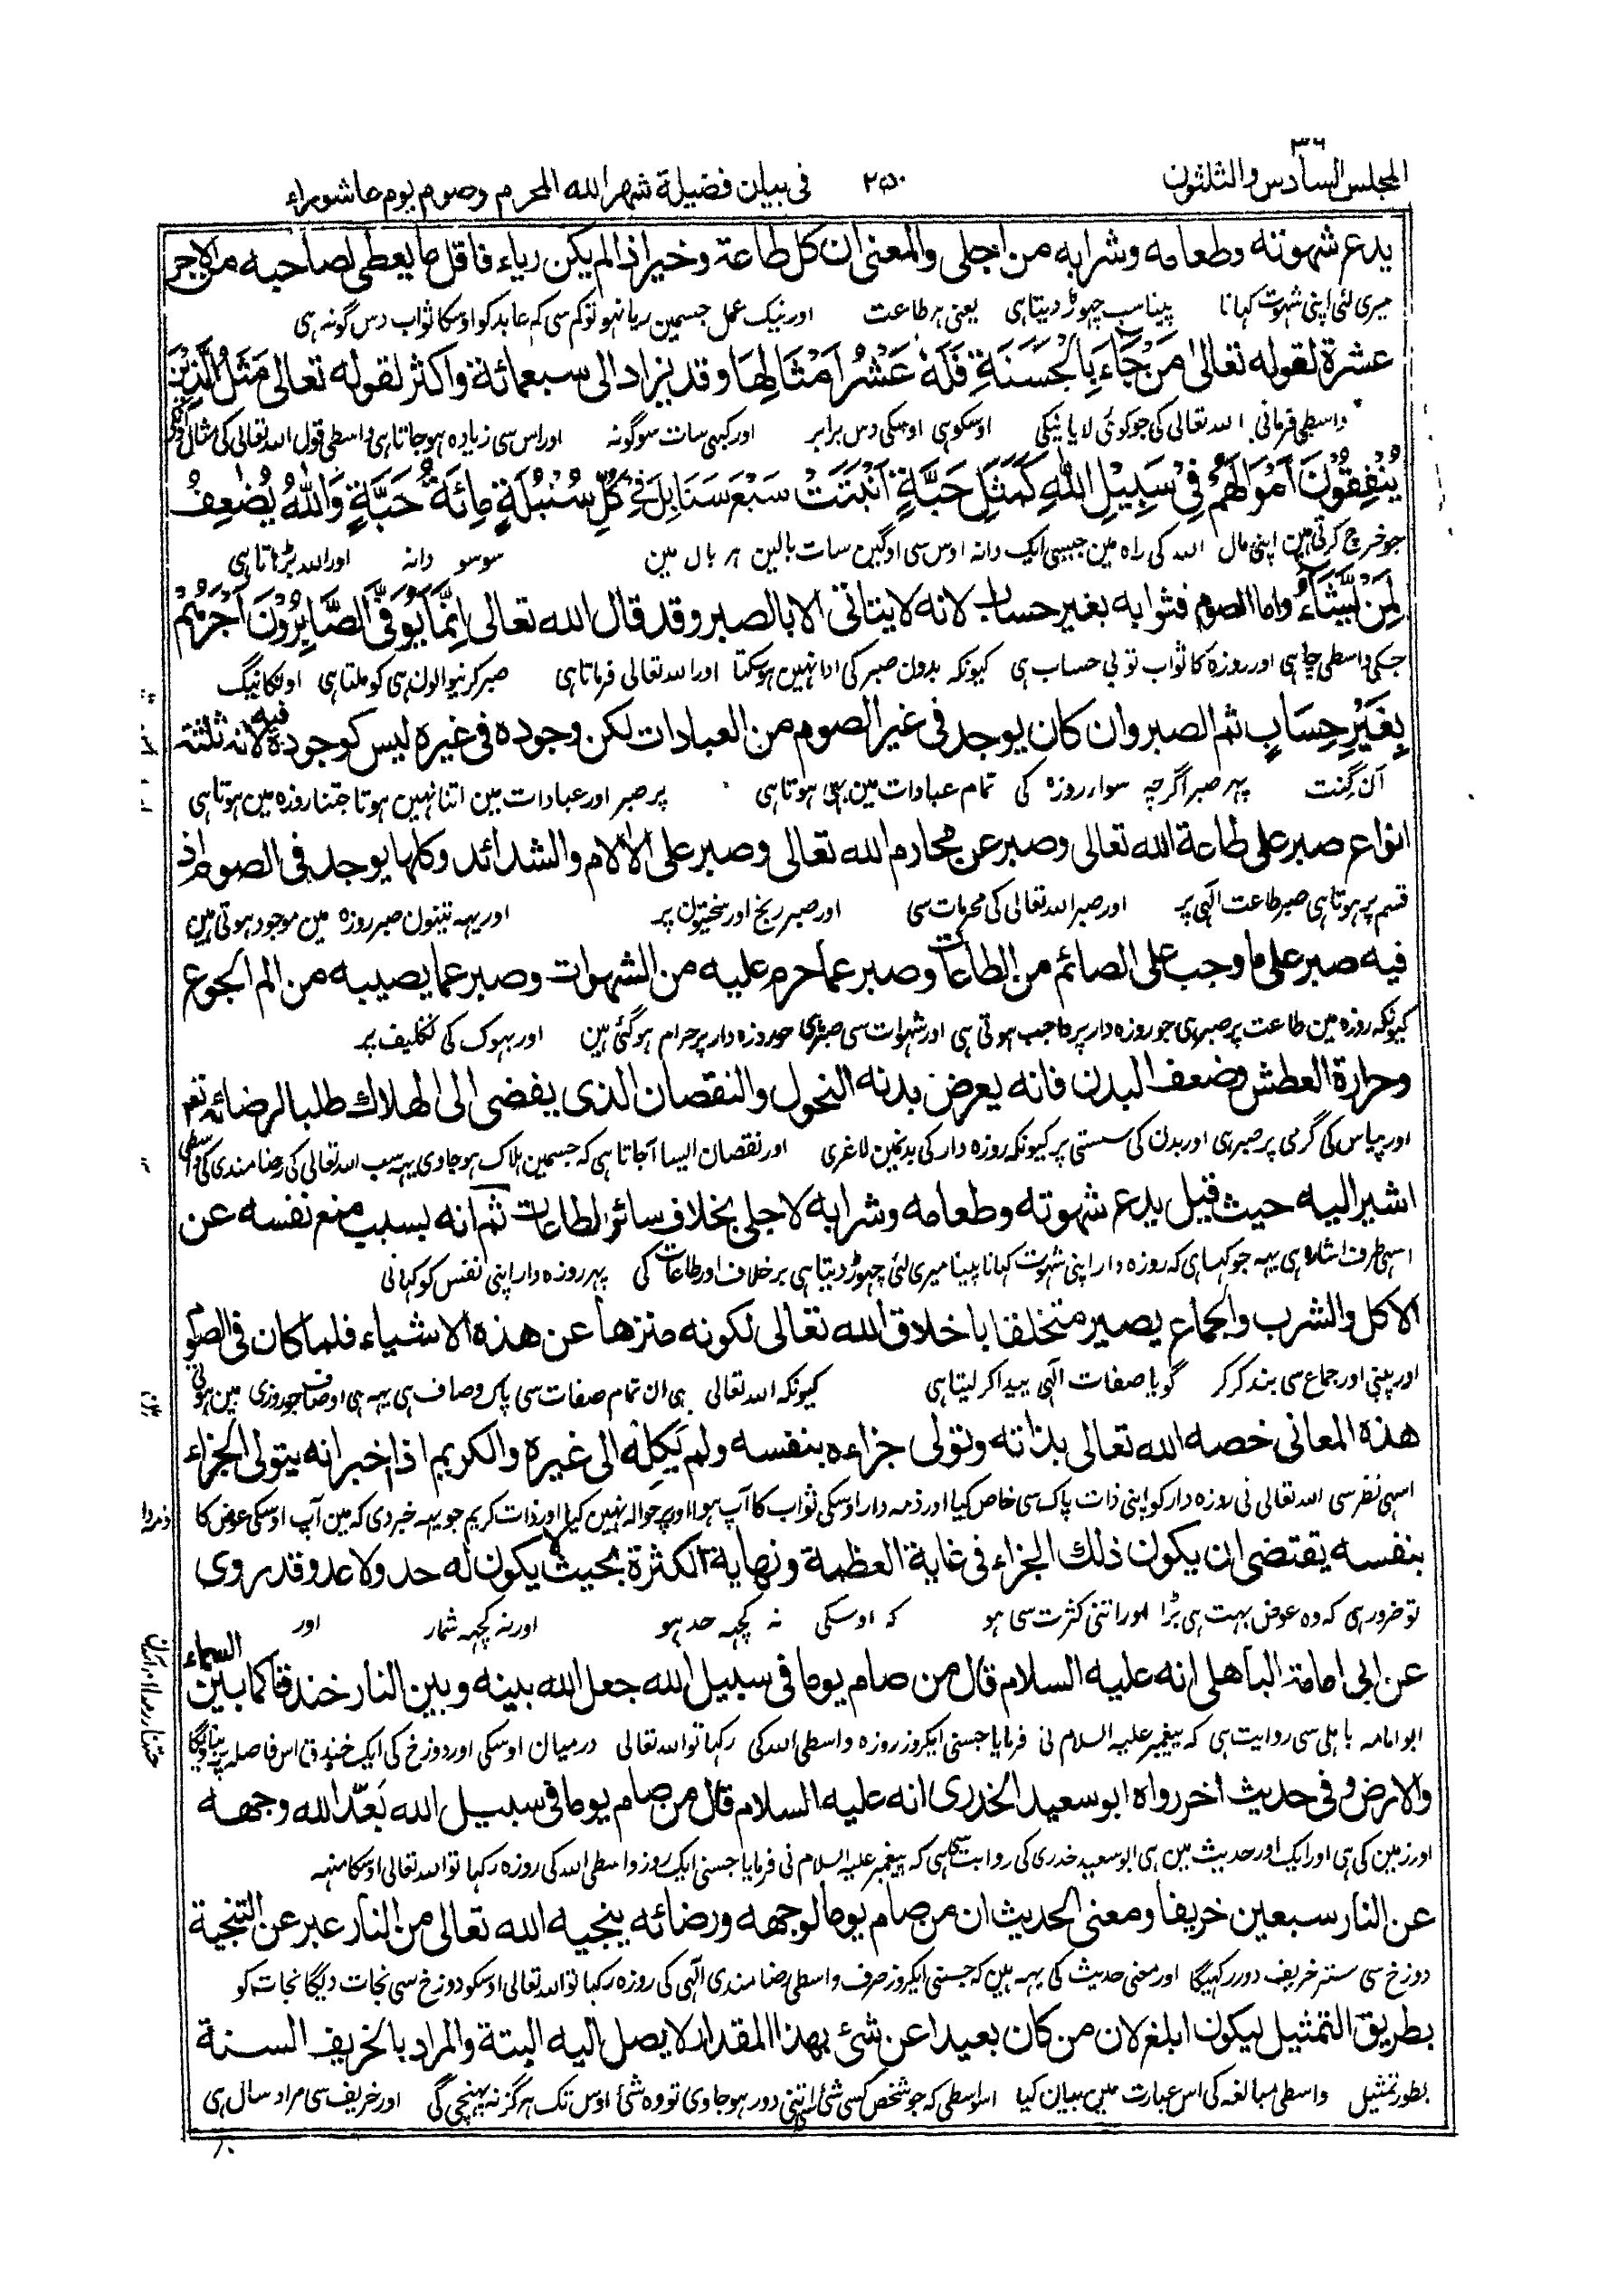 ٣٦
المجلس السادس والثلثون ٢٥٠ فى بيان فضيلة شهر الله المحرم وصوم يوم عاشوراء
يدع شهوته وطعامه وشرابه من اجلى والمعنى ان كل طاعة وخير اذا لم يكن رياء فاقل ما يعطى لصاحبه من الاجر
میری لئی اپنی شہوت کہانا پینا سب چہوڑ دیتا ہی یعنی ہر طاعت اور نیک عمل جسمین ریا نہو تو کم سی کم عابد کو اوسکا ثواب دس گونہ ہی
عشرة لقوله تعالى مَنْ جَاءَ بِالْحَسَنَةِ فَلَهٗ عَشْرُ اَمْثَالِهَا وقد يزاد الى سبعمائة واكثر لقوله تعالى مَثَلُ الَّذِيْنَ
واسطی فرمانی اللہ تعالی کی جو کوئی لایا نیکی اوسکو ہی اوسکی دس برابر اور کبہی سات سو گونہ اور اس سی زیادہ ہو جاتا ہی واسطی قول اللہ تعالی کی مثال اونکی
يُنْفِقُوْنَ اَمْوَالَهُمْ فِيْ سَبِيْلِ اللهِ كَمَثَلِ حَبَّةٍ اَنْبَتَتْ سَبْعَ سَنَابِلَ فِيْ كُلِّ سُنْبُلَةٍ مِائَةُ حَبَّةٍ وَاللهُ يُضٰعِفُ
جو خرچ کرتی ہین اپنی مال اللہ کی راہ مین جیسی ایک دانہ اوس سی اوگین سات بالین ہر بال مین سو سو دانہ اور اللہ بڑاتا ہی
لِمَنْ يَّشَاءُ واما الصوم فثوابه بغير حساب لانه لا يتاتى الا بالصبر وقد قال الله تعالى اِنَّمَا يُوَفَّى الصَّابِرُوْنَ اَجْرَهُمْ
جسکی واسطی چاہی اور روزہ کا ثواب تو بی حساب ہی کیونکہ بدون صبر کی ادا نہین ہو سکتا اور اللہ تعالی فرماتا ہی صبر کرنیوالون ہی کو ملتا ہی اونکا نیگ
بِغَيْرِ حِسَابٍ ثم الصبر وان كان يوجد فى غير الصوم من العبادات لكن وجوده فى غيره ليس كوجوده فيه لانه ثلثة
ان گنت پہر صبر اگرچہ سواء روزہ کی تمام عبادات مین بہی ہوتا ہی پر صبر اور عبادات مین اتنا نہین ہوتا جتنا روزہ مین ہوتا ہی
انواع صبر على طاعة الله تعالى وصبر عن محارم الله تعالى وصبر على الالام والشدائد وكلها يوجد فى الصوم اذ
قسم پر ہوتا ہی صبر طاعت الہی پر اور صبر اللہ تعالی کی محرمات سی اور صبر رنج اور سختیون پر اور یہہ تینون صبر روزہ مین موجود ہوتی ہین
فيه صبر على ما وجب على الصائم من الطاعات وصبر عما حرم عليه من الشهوات وصبر عما يصيبه من الم الجوع
کیونکہ روزہ مین طاعت پر صبر ہی جو روزہ دار پر واجب ہوتی ہی اور شہوات سی صبر ہی جو روزہ دار پر حرام ہو گئی ہین اور بہوک کی تکلیف پر
وحرارة العطش وضعف البدن فانه يعرض بدنه النحول والنقصان الذى يفضى الى الهلاك طلبا لرضائه تعم
اور پیاس کی گرمی پر صبر ہی اور بدن کی سستی پر کیونکہ روزہ دار کی بدنمین لاغری اور نقصان ایسا آجاتا ہی کہ جسمین ہلاک ہو جاوی یہہ سب اللہ تعالی کی رضامندی کی واسطی
اشير اليه حيث قيل يدع شهوته وطعامه وشرابه لاجلى بخلاف سائر الطاعات ثم انه بسبب منع نفسه عن
اسی طرف اشارہ ہی یہہ جو کہا ہی کہ روزہ دار اپنی شہوت کہانا پینا میری لئی چہوڑ دیتا ہی برخلاف اور طاعات کی پہر روزہ دار اپنی نفس کو کہانی
الاكل والشرب والجماع يصير متخلقا باخلاق الله تعالى لكونه منزها عن هذه الاشياء فلما كان فى الصوم
اور پینی اور جماع سی بند کر کر گویا صفات الہی پیدا کر لیتا ہی کیونکہ اللہ تعالی ہی ان تمام صفات سی پاک وصاف ہی یہہ ہی اوصاف جو روزی مین ہوتی
هذه المعانى خصه الله تعالى بذاته وتولى جزاءه بنفسه ولم يَكِلْه الى غيره والكريم اذا اخبر انه يتولى الجزاء
اسی نظر سی اللہ تعالی نی روزہ دار کو اپنی ذات پاک سی خاص کیا اور ذمہ دار اوسکی ثواب کا آپ ہوا اور پر حوالہ نہین کیا اور ذات کریم جو یہہ خبر دی کہ مین آپ اوسکی عوض کا
بنفسه يقتضى ان يكون ذلك الجزاء فى غاية العظمة ونهاية الكثرة بحيث لا يكون له حد ولا عد وقد روى
تو ضرور ہی کہ وہ عوض بہت ہی بڑا اور اتنی کثرت سی ہو کہ اوسکی نہ کچہہ حد ہو اور نہ کچہہ شمار اور
عن ابى امامة الباهلى انه عليه السلام قال من صام يوما فى سبيل الله جعل الله بينه وبين النار خندقا كما بين السماء
ابو امامہ باہلی سی روایت ہی کہ پیغمبر علیہ السلام نی فرمایا جسنی ایکروز روزہ واسطی اللہ کی رکہا تو اللہ تعالی درمیان اوسکی اور دوزخ کی ایک خندق اس فاصلہ پر بناویگا
والارض وفى حديث اخر رواه ابو سعيد الخدرى انه عليه السلام قال من صام يوما فى سبيل الله بَعّدَ الله وجهه
اور زمین کی ہی اور ایک اور حدیث مین ہی ابو سعید خدری کی روایت سی کہ پیغمبر علیہ السلام نی فرمایا جسنی ایک روز واسطی اللہ کی روزہ رکہا تو اللہ تعالی اوسکا منہہ
عن النار سبعين خريفا ومعنى الحديث ان من صام يوما لوجهه ورضائه ينجيه الله تعالى من النار عبر عن التنجية
دوزخ سی ستر خریف دور رکہیگا اور معنی حدیث کی یہہ ہین کہ جسنی ایکروز صرف واسطی رضامندی الہی کی روزہ رکہا تو اللہ تعالی اوسکو دوزخ سی نجات دیگا نجات کو
بطريق التمثيل ليكون ابلغ لان من كان بعيدا عن شئ بهذا المقدار لا يصل اليه البتة والمراد بالخريف السنة
بطور تمثیل واسطی مبالغہ کی اس عبارت مین بیان کیا اسواسطی کہ جو شخص کسی شئ سی اتنی دور ہو جاوی تو وہ شئ اوس تک ہرگز نہ پہنچی گی اور خریف سی مراد سال ہی